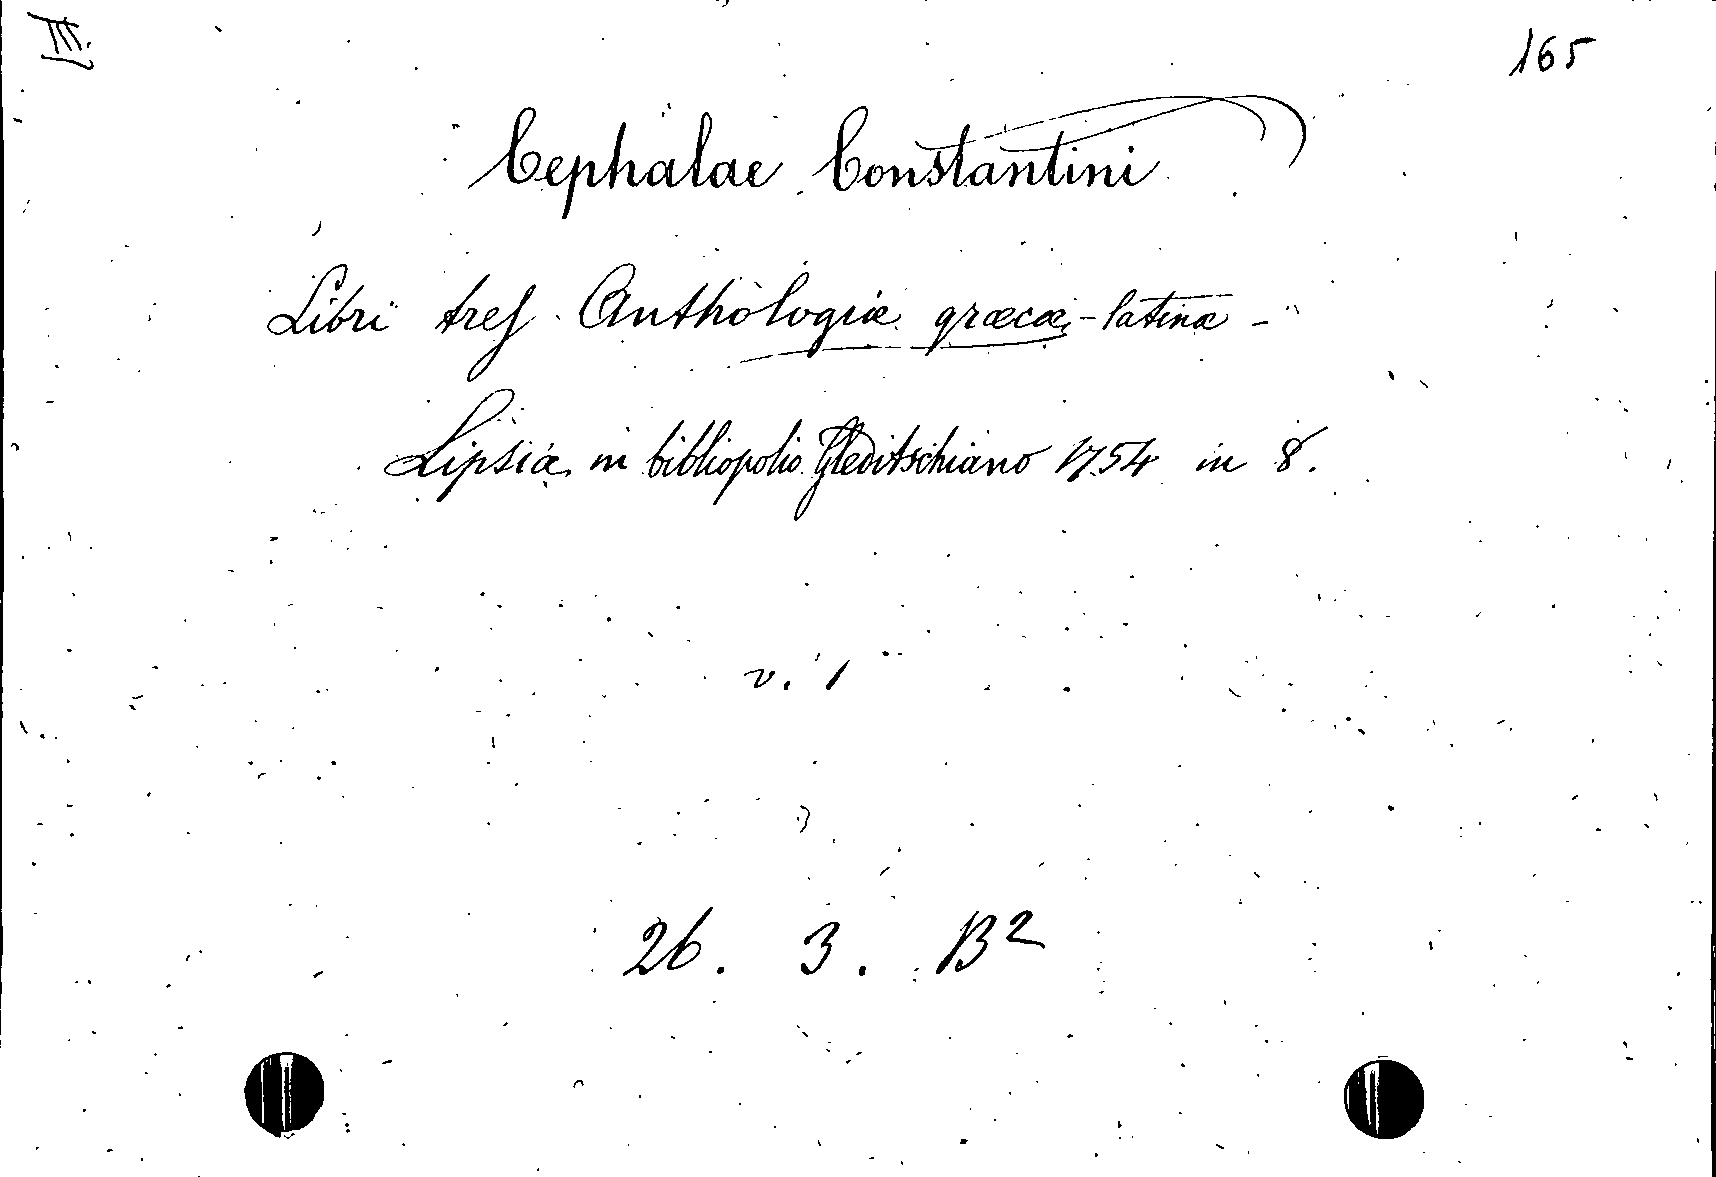 III.
165
Cephalae Constantini
Libri tres Anthologiæ græcæ-latinæ -
Lipsiæ in bibliopolio Gleditschiano 1754 in 8.
v. 1
26. 3. B2